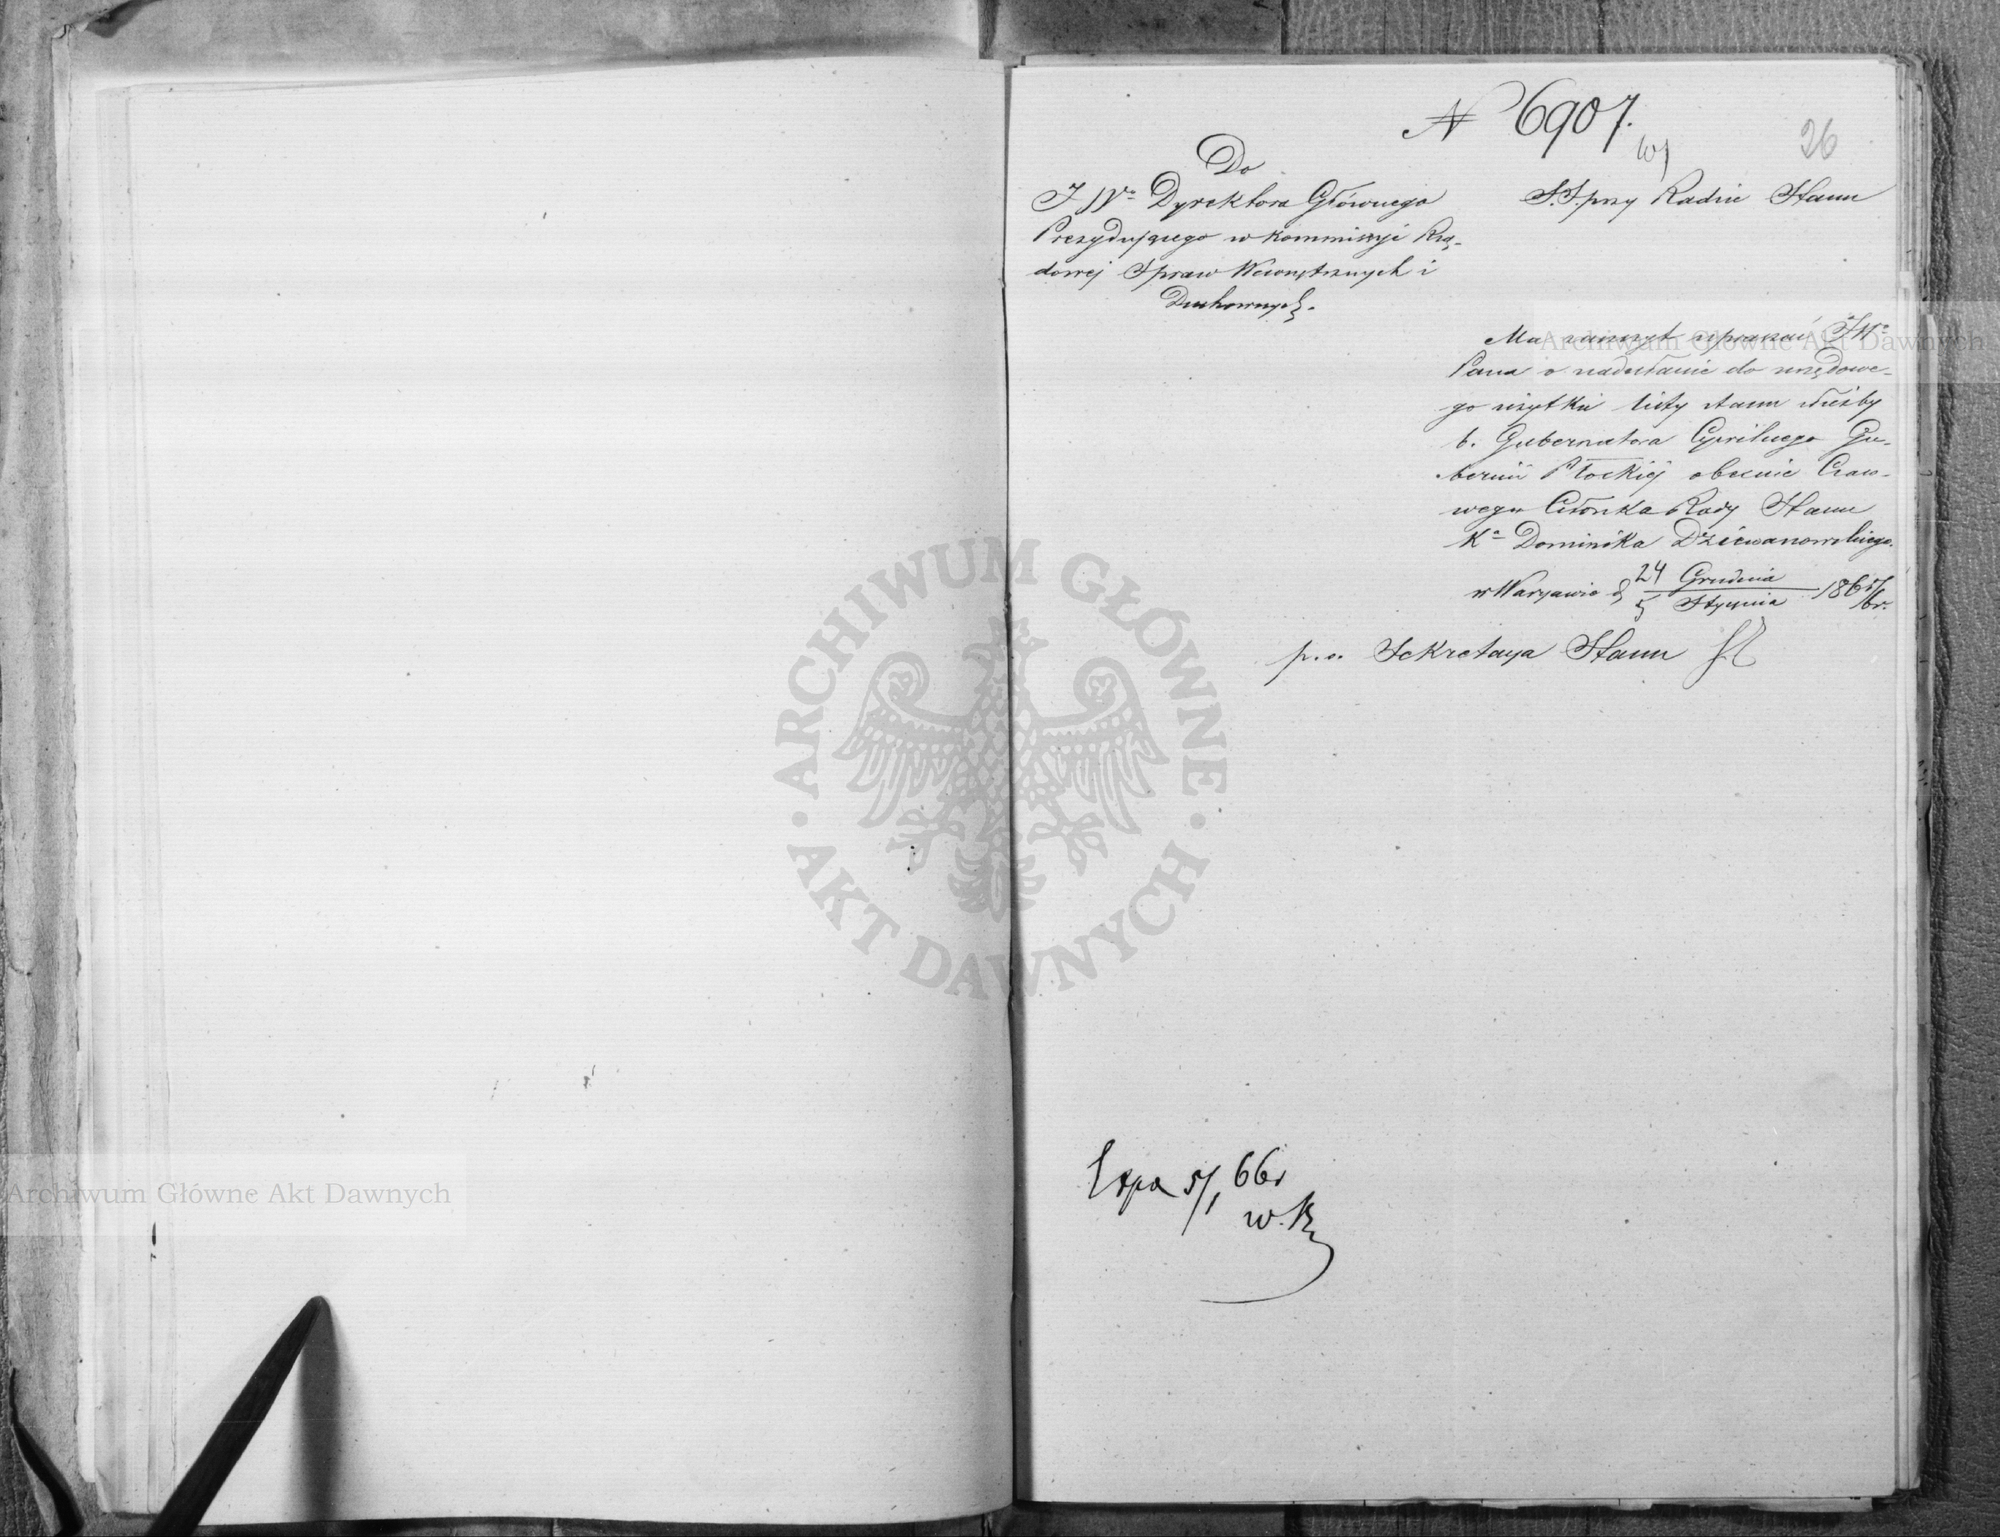 N 6907.
26
w/
Do
J W° Dyrektora Głównego
Prezydującego w Kommissyi Rzą-
dowej Spraw Wewnętrznych i
Duchownych.
S. S. przy Radzie Stanu
Ma zaszczyt upraszać JW°
Pana o nadesłanie do urzędowe-
go użytku listy stanu służby
b. Gubernatora Cywilnego Gu-
bernii Płockiej obecnie Czaso-
wego Członka Rady Stanu
K° Dominika Dziewanowskiego.
w Warszawie d 24 Grudnia / 5 Stycznia 1865/6 r.
p. o. Sekretarza Stanu
Exp 5/1 66 r
w. K
ARCHIWUM GŁÓWNE
AKT DAWNYCH
Archiwum Główne Akt Dawnych
Archiwum Główne Akt Dawnych